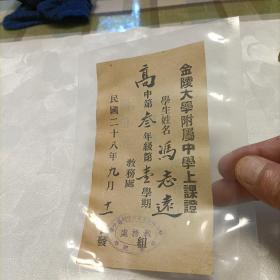 金陵大學附屬中學上課證
學生姓名 馮志遠
高中第叁年級第壹學期
教務處
民國二十八年九月十一
組發